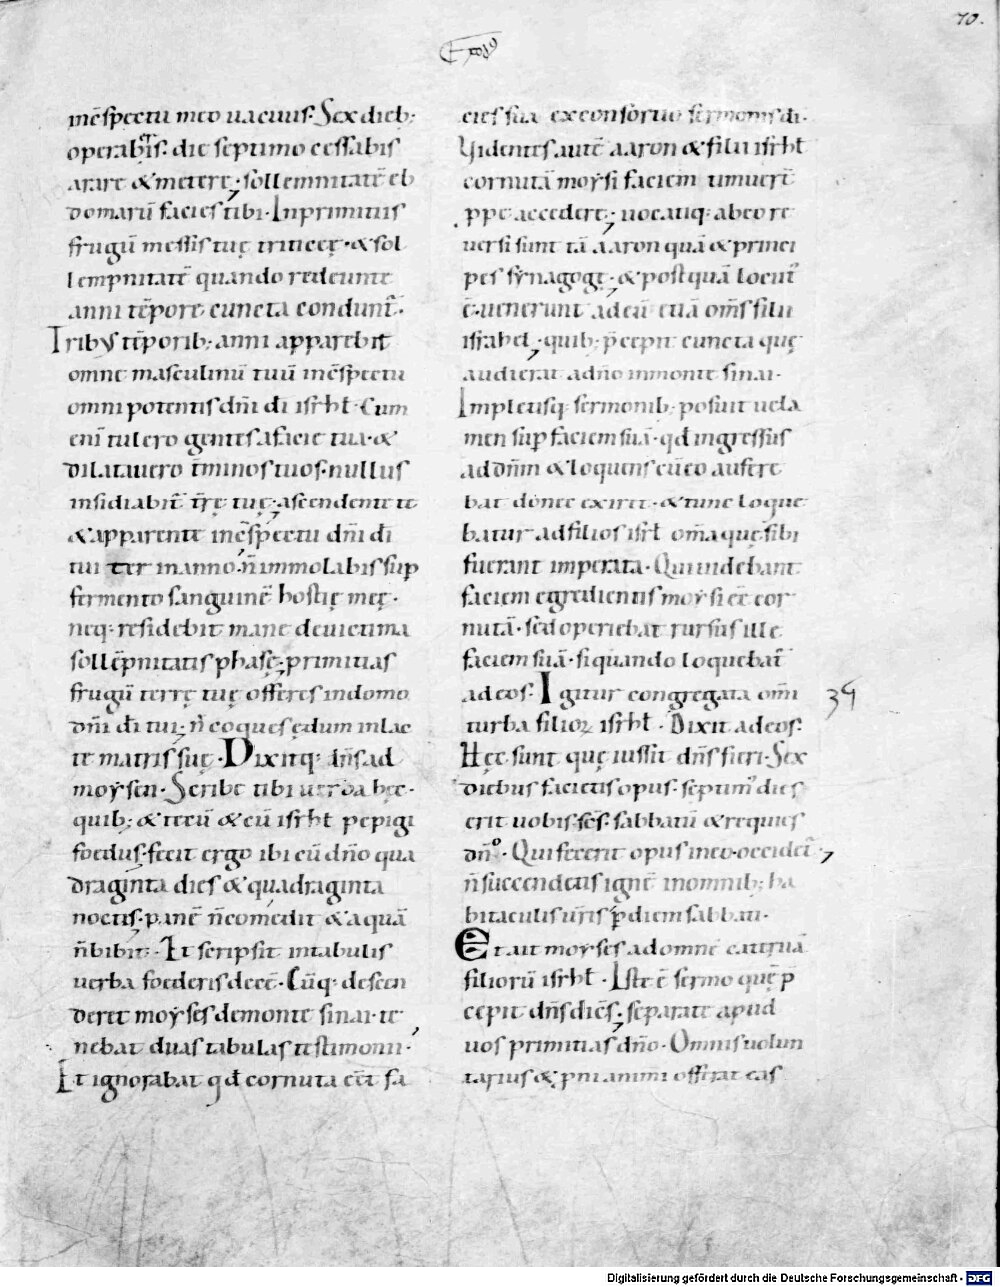 70.
Exod9
inc̄spectu meo uacuus. Sex dieb;
operabis. die septimo cessabis
arare & metere; sollemnitatē eb
domarū facies tibi. Inprimitiis
frugū messis tuę triticeę. & sol
lempnitatē quando redeunte
anni tēpore cuncta condunt̄.
Tribus tēporib; anni apparebit
omne masculinū tuū inc̄spectu
omnipotentis dn̄i dī isrƚ. Cum
enī tulero gentes afacie tua. &
dilatauero t̄minos tuos. nullus
insidiabit̄ tr̄ę tuę; ascendente te
& apparente inc̄spectu dn̄i dī
tui ter in anno. n̄ immolabis sup
fermento sanguinē hostię meę.
neq. residebit mane deuictima
sollēpnitatis phasę; primitias
frugū terrę tuę offeres indomo
dn̄i dī tui; n̄ coques ędum inlac
te matris suę. Dixitq; dn̄s ad
moysen. Scribe tibi uerba hęc.
quib; & tecū & cū isrƚ pepigi
foedus. fecit ergo ibi cū dn̄o qua
draginta dies & quadraginta
noctis. panē n̄ comedit & aquā
n̄ bibit. Et scripsit intabulis
uerba foederis decē. Cūq. descen
deret moyses demonte sinai. te
nebat duas tabulas testimonii.
Et ignorabat qđ cornuta eēt fa
cies sua exconsortio sermonis dī.
Videntes autē aaron & filii isrƚ
cornutā moysi faciem timuerē
ppe accedere; uocatiq; abeo re
uersi sunt tā aaron quā & princi
pes synagogę; & postquā locut'
ē. uenerunt adeū etiā om̄s filii
israhel; quib; p̄cepit cuncta quę
audierat adn̄o inmonte sinai.
Impletisq; sermonib; posuit uela
men sup faciem suā. qđ ingressus
ad dn̄m & loquens cū eo aufere
bat donec exiret. & tunc loque
batur adfilios isrƚ om̄a quę sibi
fuerant imperata. Qui uidebant
faciem egredientis moysi eē cor
nutā. sed operiebat rursus ille
faciem suā. siquando loquebat̄
ad eos. Igitur congregata om̄i
34
turba filioꝝ isrƚ. Dixit ad eos.
Hęc sunt quę iussit dn̄s fieri. Sex
diebus facietis opus. septim' dies
erit uobis sc̄s. sabbatū & requies
dn̄o. Qui fecerit opus ineo. occidet̄;
n̄ succendetis ignē inomnib; ha
bitaculis ur̄is p̄ diem sabbati.
Et ait moyses ad omnē cateruā
filiorū isrƚ. Iste ē sermo quē p̄
cepit dn̄s dicēs; separate apud
uos primitias dn̄o. Omnis uolun
tarius & pni animi offerat eas
Digitalisierung gefördert durch die Deutsche Forschungsgemeinschaft - DFG